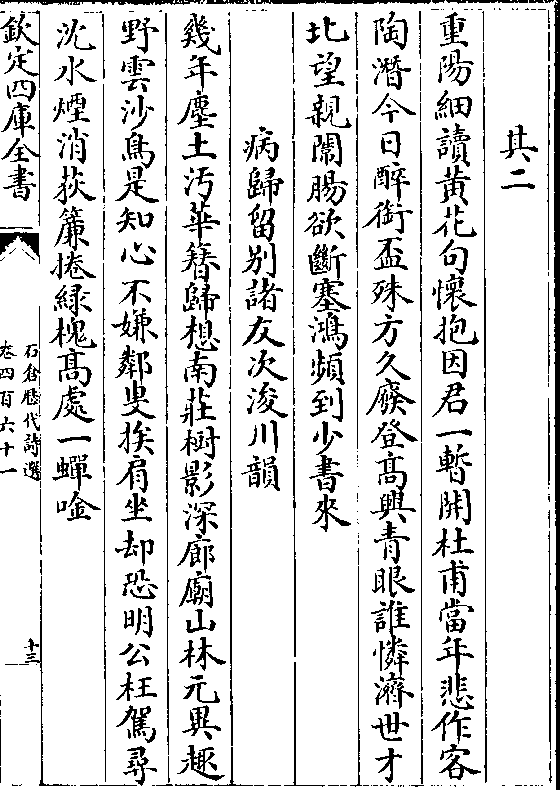 其二
重陽細讀黃花句懷抱因君一暫開杜甫當年悲作客
陶潛今日醉銜盃殊方久廢登高興青眼誰憐濟世才
北望親闈腸欲斷塞鴻頻到少書來
病歸留別諸友次浚川韻
幾年塵土汚華簪歸想南莊樹影深廊廟山林元異趣
野雲沙鳥是知心不嫌鄰叟挨肩坐却恐明公枉駕尋
沈水煙消荻簾捲綠槐高處一蟬唫
欽定四庫全書
石倉歷代詩選
卷四百六十一
十三